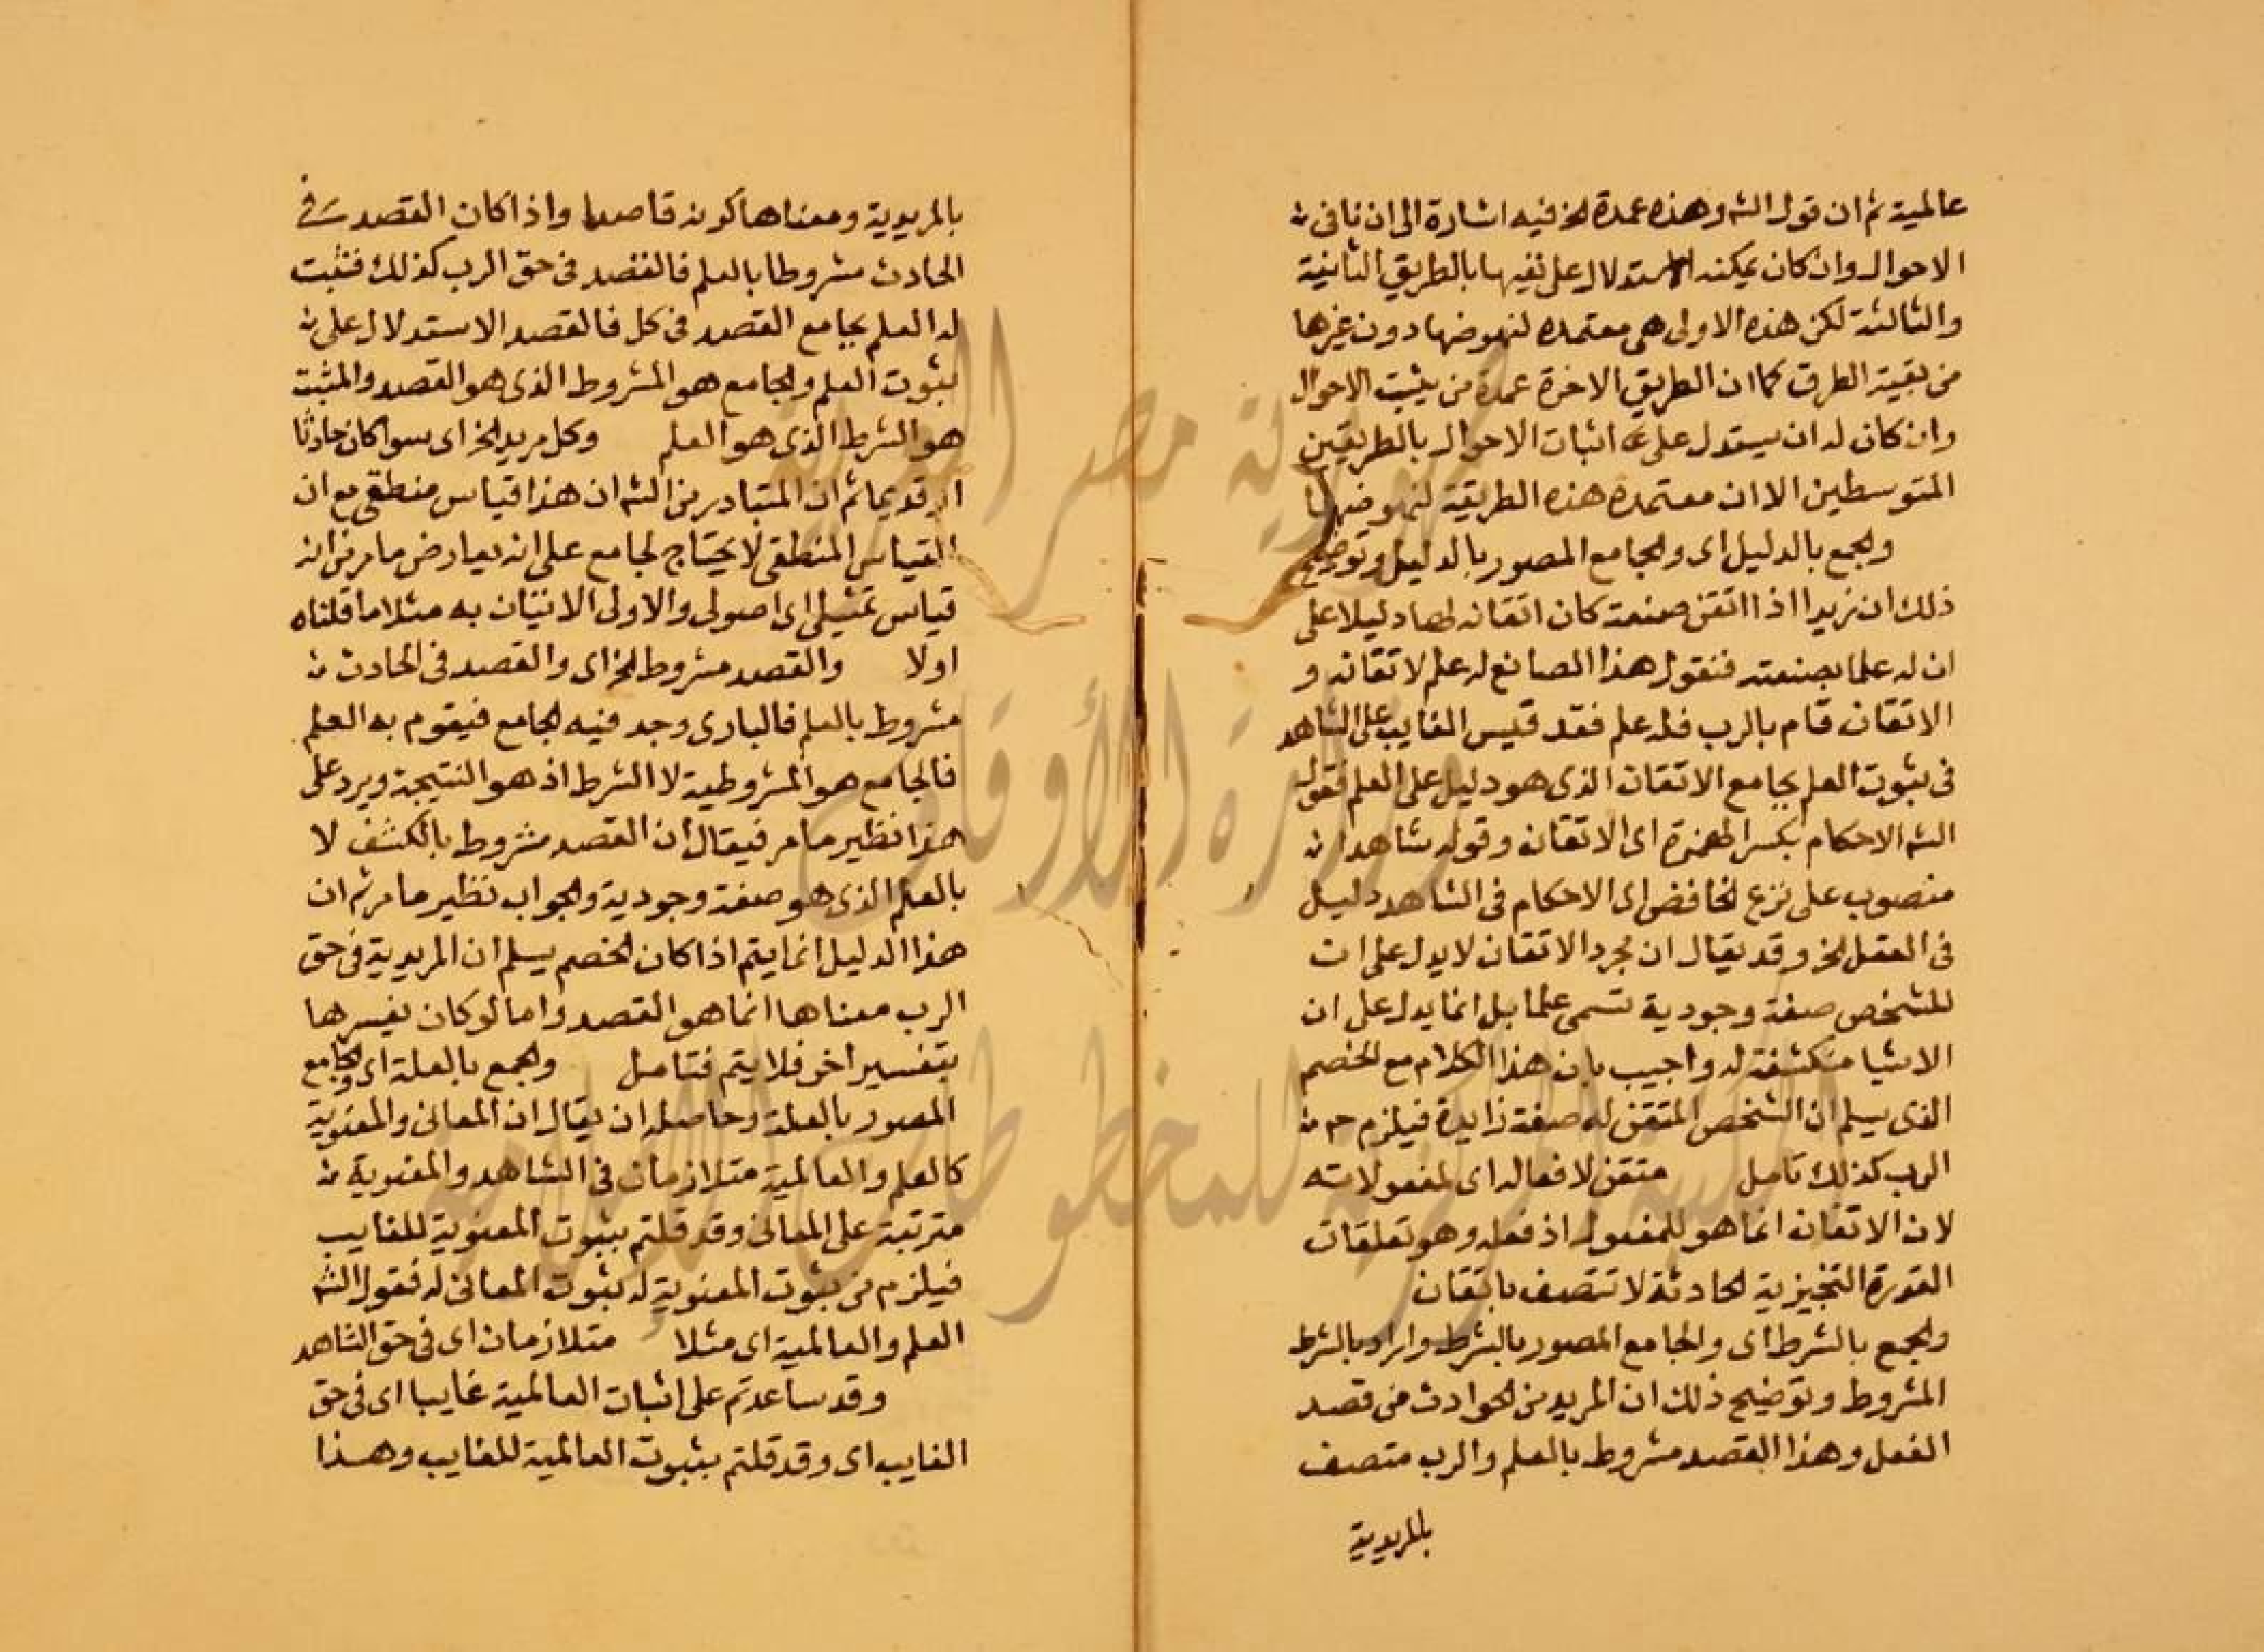 عالمية ثم ان قول الشه وهذه عمدة الخ فيه اشارة الى ان نافى
الاحوال وان كان يمكنه الاستدلال على نفيها بالطريق الثانية
والثالثة لكن هذه الاولى هي معتمده لنهوضها دون غيرها
من بقية الطرق كما ان الطريق الاخرة عمدة من يثبت الاحوال
وان كان له ان يستدل على اثبات الاحوال بالطريقين
المتوسطين الا ان معتمده هذه الطريقة لنهوضها
والجمع بالدليل اى والجامع المصور بالدليل وتوضيح
ذلك ان زيدا اذا اتقن صنعة كان اتقانه لها دليلا على
ان له علما بصنعته فنقول هذا الصانع له علم لاتقانه و
الاتقان قام بالرب فله علم فقد قيس الغايب على الشاهد
فى ثبوت العلم بجامع الاتقان الذى هو دليل على العلم فقول
الشه الاحكام بكسر الهمزة اى الاتقان وقوله شاهدا
منصوب على نزع الخافض اى الاحكام فى الشاهد دليل
فى العقل الخ وقد يقال ان مجرد الاتقان لا يدل على ان
للشخص صفة وجودية تسمى علما بل انما يدل على ان
الاشيا منكشفة له واجيب بان هذا الكلام مع الخصم
الذى يسلم ان الشخص المتقن له صفة زايدة فيلزم ح
الرب كذلك تامل متقن لافعاله اى لمفعولاته
لان الاتقان انما هو للمفعول اذ فعله وهو تعلقات
القدرة التنجيزية الحادثة لا تتصف باتقان
والجمع بالشرط اى والجامع المصور بالشرط واراد بالشرط
المشروط وتوضيح ذلك ان المريد من الحوادث من قصد
الفعل وهذا القصد مشروط بالعلم والرب متصف
بالمريدية
بالمريدية ومعناها كونه قاصدا واذا كان القصد فى
الحادث مشروطا بالعلم فالقصد فى حق الرب كذلك فثبت
له العلم بجامع القصد فى كل فالقصد الاستدلال على
ثبوت العلم والجامع هو المشروط الذى هو القصد والمثبت
هو الشرط الذى هو العلم وكل مريد الخ اى سوا كان حادثا
او قديما ثم ان المتبادر من الشه ان هذا قياس منطقى مع ان
القياس المنطقى لا يحتاج لجامع على انه يعارض ما مر من انه
قياس تمثيلى اى اصولى والاولى الاتيان به مثلا ما قلناه
اولا والقصد مشروط الخ اى والقصد فى الحادث
مشروط بالعلم فالبارى وجد فيه الجامع فيقوم به العلم
فالجامع هو المشروطية لا الشرط اذ هو النتيجة ويرد على
هذا نظير ما مر فيقال ان القصد مشروط بالكشف لا
بالعلم الذى هو صفة وجودية والجواب نظير ما مر ثم ان
هذا الدليل انما يتم اذا كان الخصم يسلم ان المريدية فى حق
الرب معناها انما هو القصد واما لو كان يفسرها
بتفسير اخر فلا يتم فتامل والجمع بالعلة اى والجامع
المصور بالعلة وحاصله ان يقال ان المعانى والمعنوية
كالعلم والعالمية متلازمان فى الشاهد والمعنوية
مترتبة على المعانى وقد قلتم بثبوت المعنوية للغايب
فيلزم من ثبوت المعنوية له ثبوت المعانى له فقول الشه
العلم والعالمية اى مثلا متلازمان اى فى حق الشاهد
وقد ساعدتم على اثبات العالمية غايبا اى فى حق
الغايب اى وقد قلتم بثبوت العالمية للغايب وهذا
جمهورية مصر العربية
وزارة الأوقاف
المكتبة المركزية للمخطوطات الإسلامية